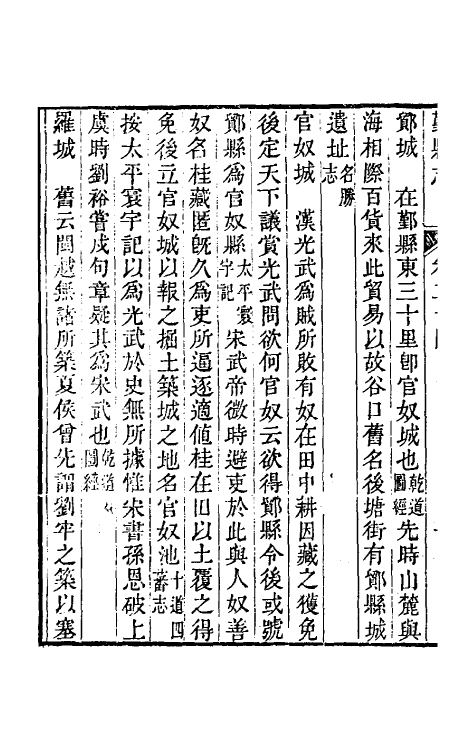 鄮城　在鄞縣東三十里卽官奴城也乾道圖經先時山麓與
海相際百貨來此貿易以故谷口舊名後塘街有鄮縣城
遺址名勝志
官奴城　漢光武爲賊所敗有奴在田中耕因藏之獲免
後定天下議賞光武問欲何官奴云欲得鄮縣令後或號
鄮縣爲官奴縣太平寰宇記宋武帝微時避吏於此與人奴善
奴名桂藏匿旣久爲吏所逼逐適値桂在田以土覆之得
免後立官奴城以報之掘土築城之地名官奴池十道四蕃志
按太平寰宇記以爲光武於史無所據惟宋書孫恩破上
虞時劉裕嘗戍句章疑其爲宋武也乾道圖經
羅城　舊云閩越無諸所築夏侯曾先謂劉牢之築以塞